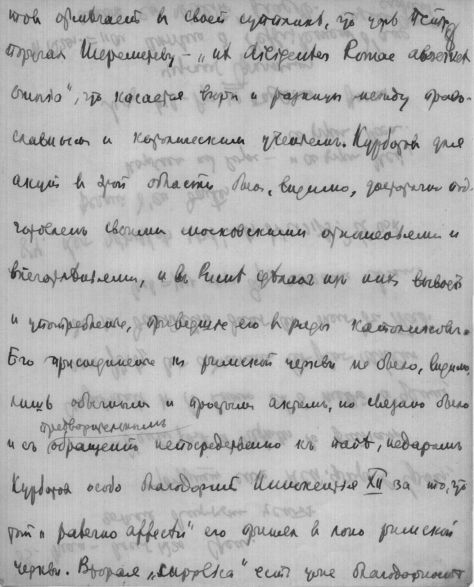 той отмечает в своей , что уже Петру
 Шереметеву — "ut dissidentes Romae
omnino", что касается веры и разницы между право-
славным и католическим учением. Курбатов для
акции в этой области был, видимо, достаточно под-
готовлен своими московскими отношениями и
впечатлениями, и в Риме сделал из них вывод
и употребление, приведшее его в ряды католиков.
Его присоединение к римской церкви не было, видимо,
лишь обычным и простым актом, но связано было
предварительным
и съ обращением непосредственно к папе, недаром
Курбатов особо благодарит Иннокентия XII за то, что
тот "paterno affectu" его принял в лоно римской
церкви. Вторая есть уже благодарност